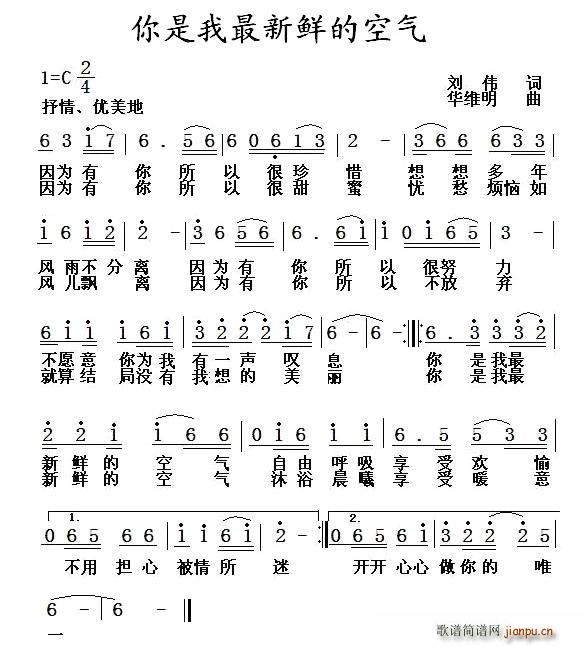 你是我最新鲜的空气
1=C 2/4
刘 伟 词
抒情、优美地
华维明 曲
6 3 i 7 | 6 . 5 6 | 6 0 6 1 3 | 2 - | 3 6 6 3 3 |
因为有 你 所 以 很珍 惜 想 想 多 年
因为有 你 所 以 很甜 蜜 忧 愁 烦恼如
i 6 i 2 | 2 - | 3 6 5 6 | 6 . 6 i | i 0 i 6 5 | 3 - |
风 雨不 分 离 因为有 你 所 以 很努 力
风 儿飘 离 因为有 你 所 以 不放 弃
6 i i i 6 i | 3 2 2 2 i 7 | 6 - | 6 - :‖: 6 . 3 3 3 2 |
不愿意 你为我 有一声 叹 息 你 是我最
就算结 局没有 我想的 美 丽 你 是我最
2 2 i i 6 6 | 0 i 6 i i | 6 . 5 5 3 3 |
新 鲜 的 空 气 自由呼吸 享 受 欢 愉
新 鲜 的 空 气 沐浴晨曦 享 受 暖 意
1. 2.
0 6 5 6 6 | i i 6 i | 2 - :‖ 0 6 5 6 i | 3 2 2 2 5 |
不用 担心 被情所 迷 开开心心 做你的 唯
6 - | 6 - ‖
一
歌谱简谱网
jianpu.cn